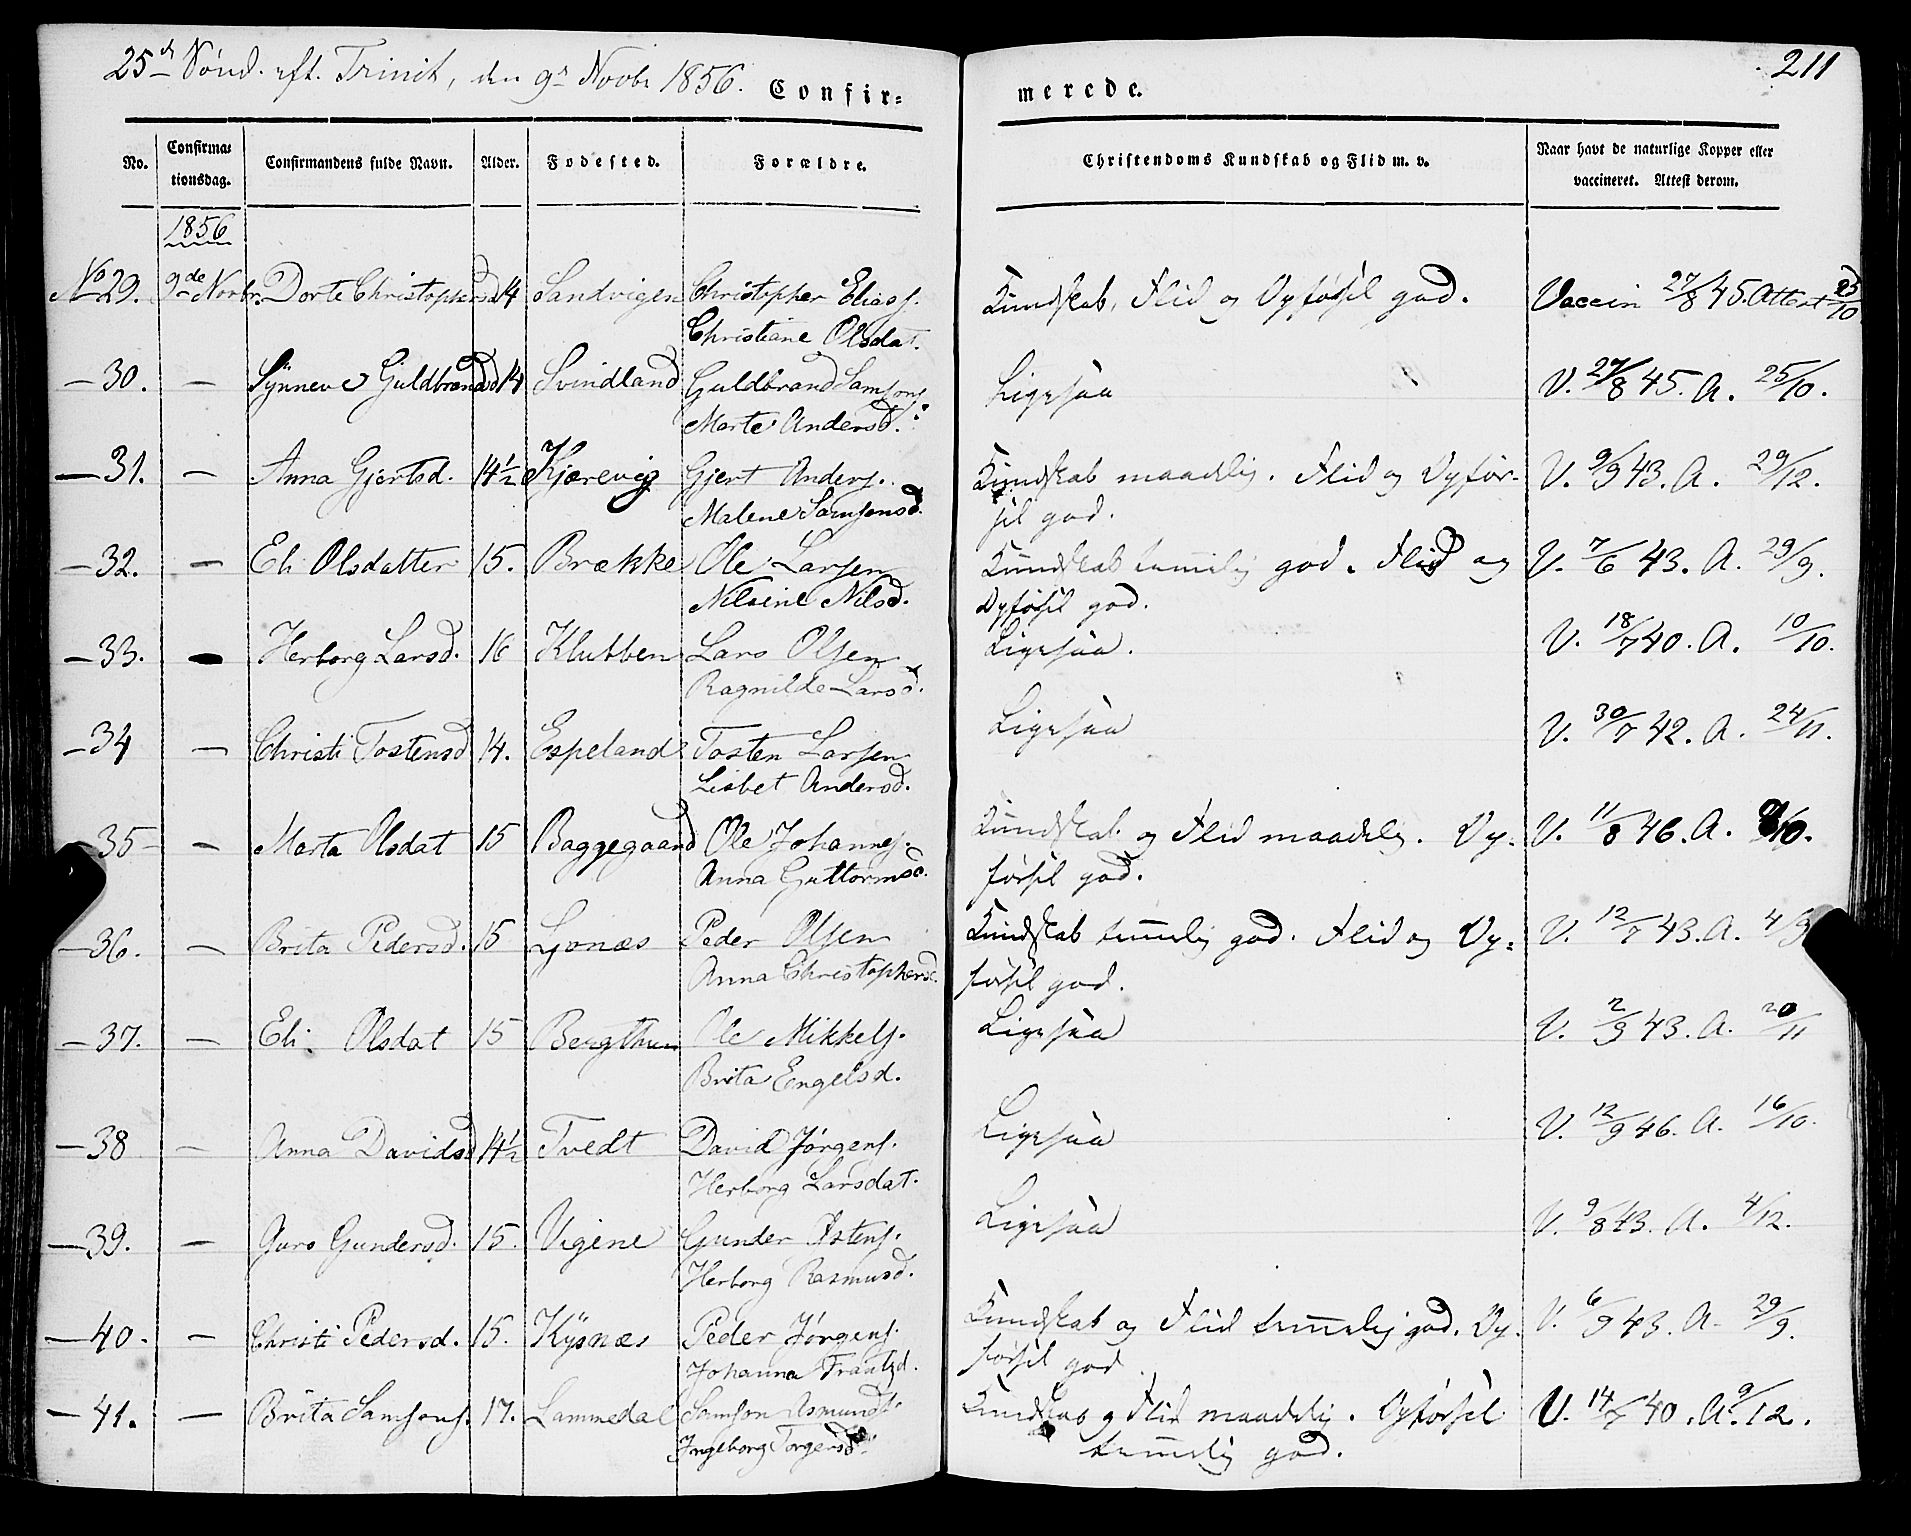 25de Sönd. eft. Trinit, den 9de Novbr 1856.
Confir=
merede.
211
No.
Confirma=
tionsdag.
Confirmandens fulde Navn.
Alder.
Fodested.
Forældre.
Christendoms Kundskab og Flid m. v.
Naar havt de naturlige Kopper eller
vaccineret. Attest derom.
1856
No 29. 9de Novbr. Dorte Christophersd 14 Sandvigen Christopher Elias. Kundskab, Flid og Opførsel god. Vaccin 27/8 45. Attest 25/10
Christiane Olsdat.
— 30. — Synneve Guldbrandsd 14 Svindland Guldbrand Samsons. Ligesaa V. 27/8 45. A. 25/10.
Marte Andersd.
— 31. — Anna Gjertsd. 14½ Kjærevig Gjert Anders. Kundskab maadelig. Flid og Opfør-
sel god. V. 9/9 43. A. 29/12.
Malene Samsonsd.
— 32. — Eli Olsdatter 15. Brække Ole Larsen Kundskab temmelig god. Flid og V. 7/6 43. A. 29/9.
Nilsine Nilsd. Opførsel god.
— 33. — Herborg Larsd. 16 Klubben Lars Olsen Ligesaa. V. 18/7 40. A. 10/10.
Ragnilde Larsd.
— 34 — Christi Tostensd 14. Espeland Tosten Larsen Ligesaa V. 30/7 42. A. 24/11.
Lisbet Andersd.
— 35 — Marta Olsdat 15 Baggegaard Ole Johannes. Kundskab og Flid maadelig. Op- V. 11/8 46. A.
Anna Guttormsd. førsel god.
— 36. — Brita Pedersd. 15 Gonæs Peder Olsen Kundskab temmelig god. Flid og Op- V. 12/7 43. A. 4/9
Anna Christophersd. førsel god.
— 37. — Eli Olsdat 15 Bergthun Ole Mikkels. Ligesaa V. 2/9 43. A. 20/11
Brita Engelsd.
— 38 — Anna Davidsd 14½ Tvedt David Jørgens. Ligesaa V. 12/9 46. A. 16/10.
Herborg Larsdat.
— 39. — Guro Gundersd. 15. Vigene Gunder Østens. Ligesaa V. 9/8 43. A. 4/12.
Herborg Rasmusd.
— 40. — Christi Pedersd. 15. Kysnæs Peder Jørgens. Kundskab og Flid temmelig god. Op- V. 6/9 43. A. 29/9.
Johanna Frantzd. førsel god
— 41. — Brita Samsons. 17. Lammedal Samson Asmunds. Kundskab og Flid maadelig. Opførsel V. 14/7 40. A. 9/12.
Ingeborg Torgersd. temmelig god.